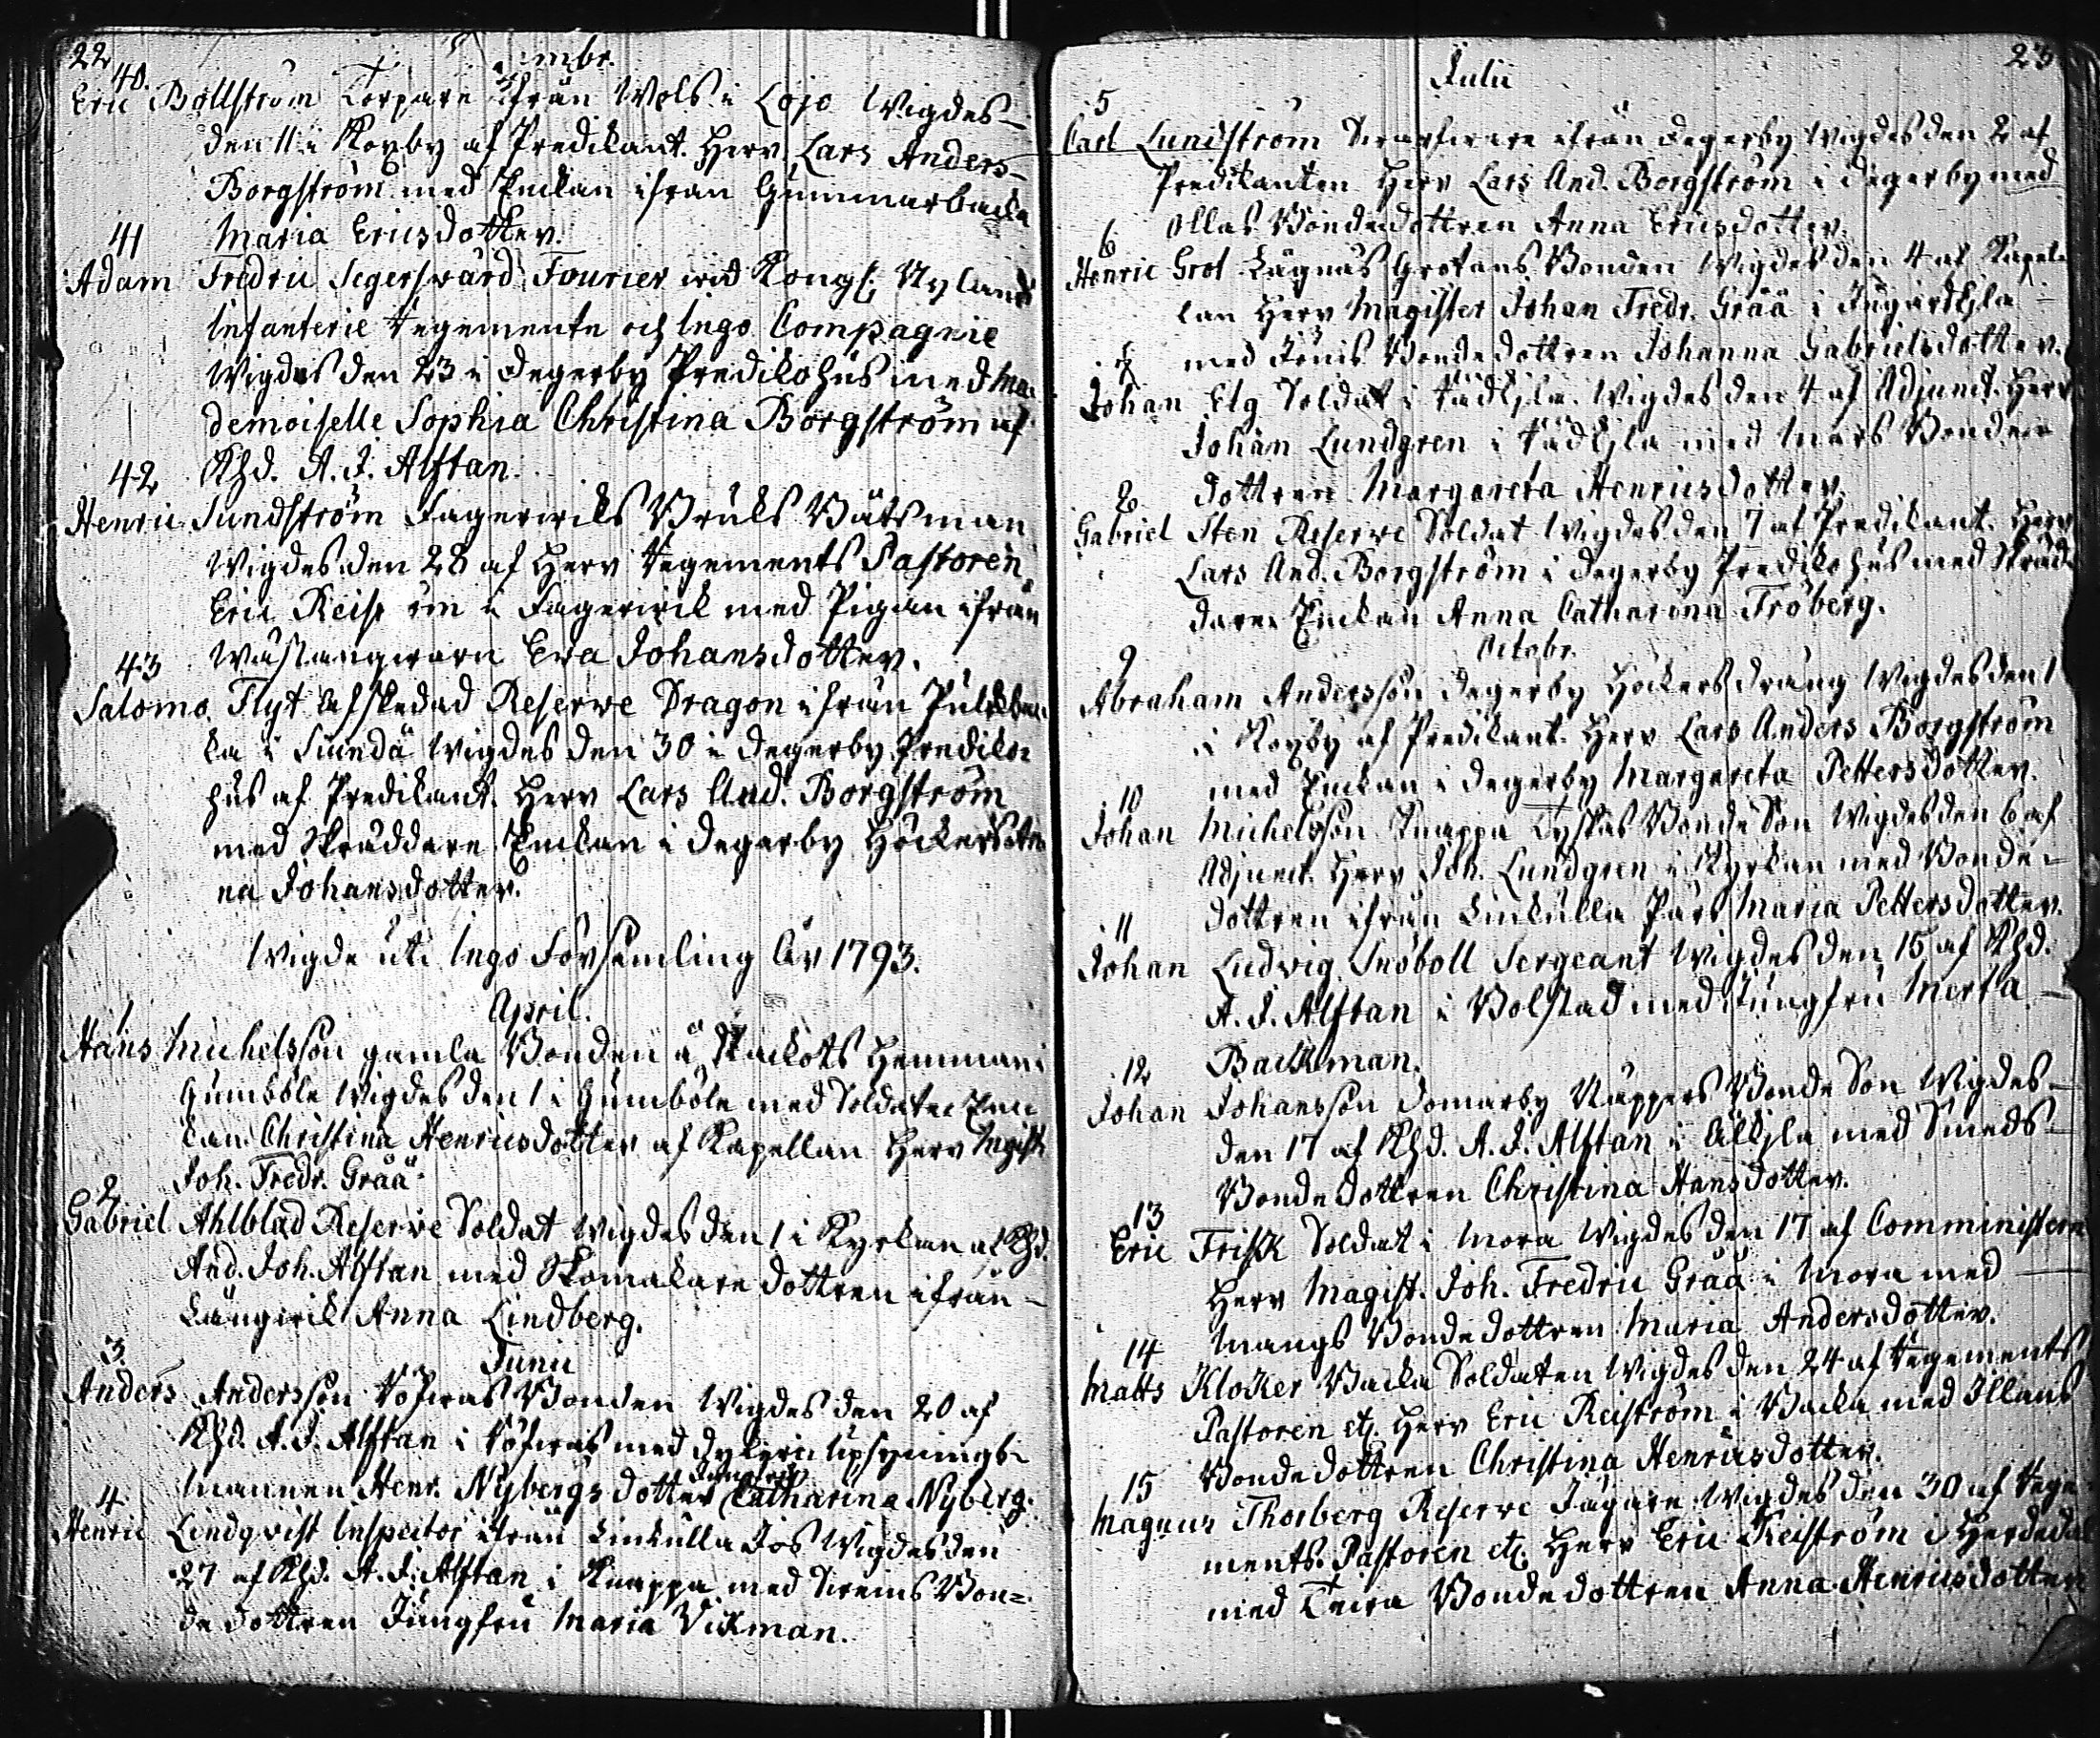 22
mbr.
40.
Eric Bollström Torpare ifrån Wols i Lojo Wigdes
den 11 i Koxby af Predikant. Herr Lars Anders
Borgström med Enckan ifrån Gunnarbacka
Maria Ericsdotter.
41
Adam Fredric Segersvärd Fourier wid Kongl. Nylands
Infanterie Regemente och Ingo Compagnie
Wigdes den 23 i Degerby Prediko hus med Ma
demoiselle Sophia Christina Borgström af
Khd. A. J. Alftan.
42
Henric Sundström Fagerwiks Bruks Båtsman
Wigdes den 28 af Herr Regements Pastoren
Eric Reist öm i Fagerwik med Pigan ifrån
Eva Johansdotter.
43
Salomo. Flyt Afskedad Reserve Dragon ifrån
ka i Siundå Wigdes den 30 i Degerby Prediko
hus af Predikant. Herr Lars And. Borgström
med Skräddare Enckan i Degerby
na Johansdotter.
Wigde uti Ingo Församling År 1793.
April.
1
Hans Michelsson gamla Bonden å Hemman i
Gumböle Wigdes den 1 i Gumböle med Soldate Enc
kan Christina Henricsdotter af Kapellan Herr Magist
Joh. Fredr. Gråå
2
Gabriel Ahlblad Reserve Soldat Wigdes den 1 i Kyrkan af Khd.
And. Joh. Alftan med Skomakare dottren ifrån
Långwik Anna Lindberg.
Junii
3.
Anders Andersson Bonden Wigdes den 20 af
Khd. A. J. Alftan i med upsynings
mannen Henr. Nybergs dotter Jungfru Catharina Nyberg.
4
Henric Lindqvist Inspector ifrån Kinkulla Jos Wigdes den
27 af Khd. A. J. Alftan i Knappa med Bon=
de dottren Jungfru Maria Vikman.
23
Julii
5
Carl Lundström ifrån Degerby Wigdes den 2 af
Predikanten Herr Lars And. Borgström i Degerby med
Ollas Bondedottren Anna Ericsdotter.
6
Henric Grot Lågnäs Grotans Bonden Wigdes den 4 af Kapel
lan Herr Magister Johan Fredr. Gråå i
med Jönis Bonde dottren Johanna Gabrielsdotter.
7
Johan Elg Soldat i Wigdes den 4 af Adjunct. Herr
Johan Lundgren i med Mårs Bonde
dottren Margareta Henricsdotter.
8
Gabriel Sten Reserve Soldat Wigdes den 7 af Predikant. Herr
Lars And. Borgström i Degerby Prediko hus med Skräd
dare Enckan Anna Catharina Fröberg.
Octobr.
9
Abraham Andersson Degerby Höckers dräng Wigdes den 1
i Koxby af Predikant. Herr Lars Anders Borgström
med Enckan i Degerby Margareta Pettersdotter.
10
Johan Michelsson Knappa Tyskas Bonde Son Wigdes den 6 af
Adjunct. Herr Joh. Lundgren i Kyrkan med Bonde
dottren ifrån Kinkulla Pärs Maria Pettersdotter.
11
Johan Ludvig Snöboll Sergeant Wigdes den 15 af Khd.
A. J. Alftan i Bolstad med Jungfru Merta
Backman.
12
Johan Johansson Domarby Näppers Bonde Son Wigdes
den 17 af Khd. A. J. Alftan i med Smeds
Bonde dottren Christina Hansdotter.
13
Eric Frisk Soldat i Mora Wigdes den 17 af Comministern
Herr Magist. Joh. Fredric Gråå i Mora med
Mangs Bonde dottren Maria Andersdotter.
14
Matts Kloker Backa Soldaten Wigdes den 24 af Regements
Pastoren etc. Herr Eric Reiström i Backa med Illans
Bonde dottren Christina Henricsdotter.
15
Magnus Thorberg Reserve Jägare Wigdes den 30 af Rege
ments Pastoren etc. Herr Eric Reiström i
med Bonde dottren Anna Henricsdotter